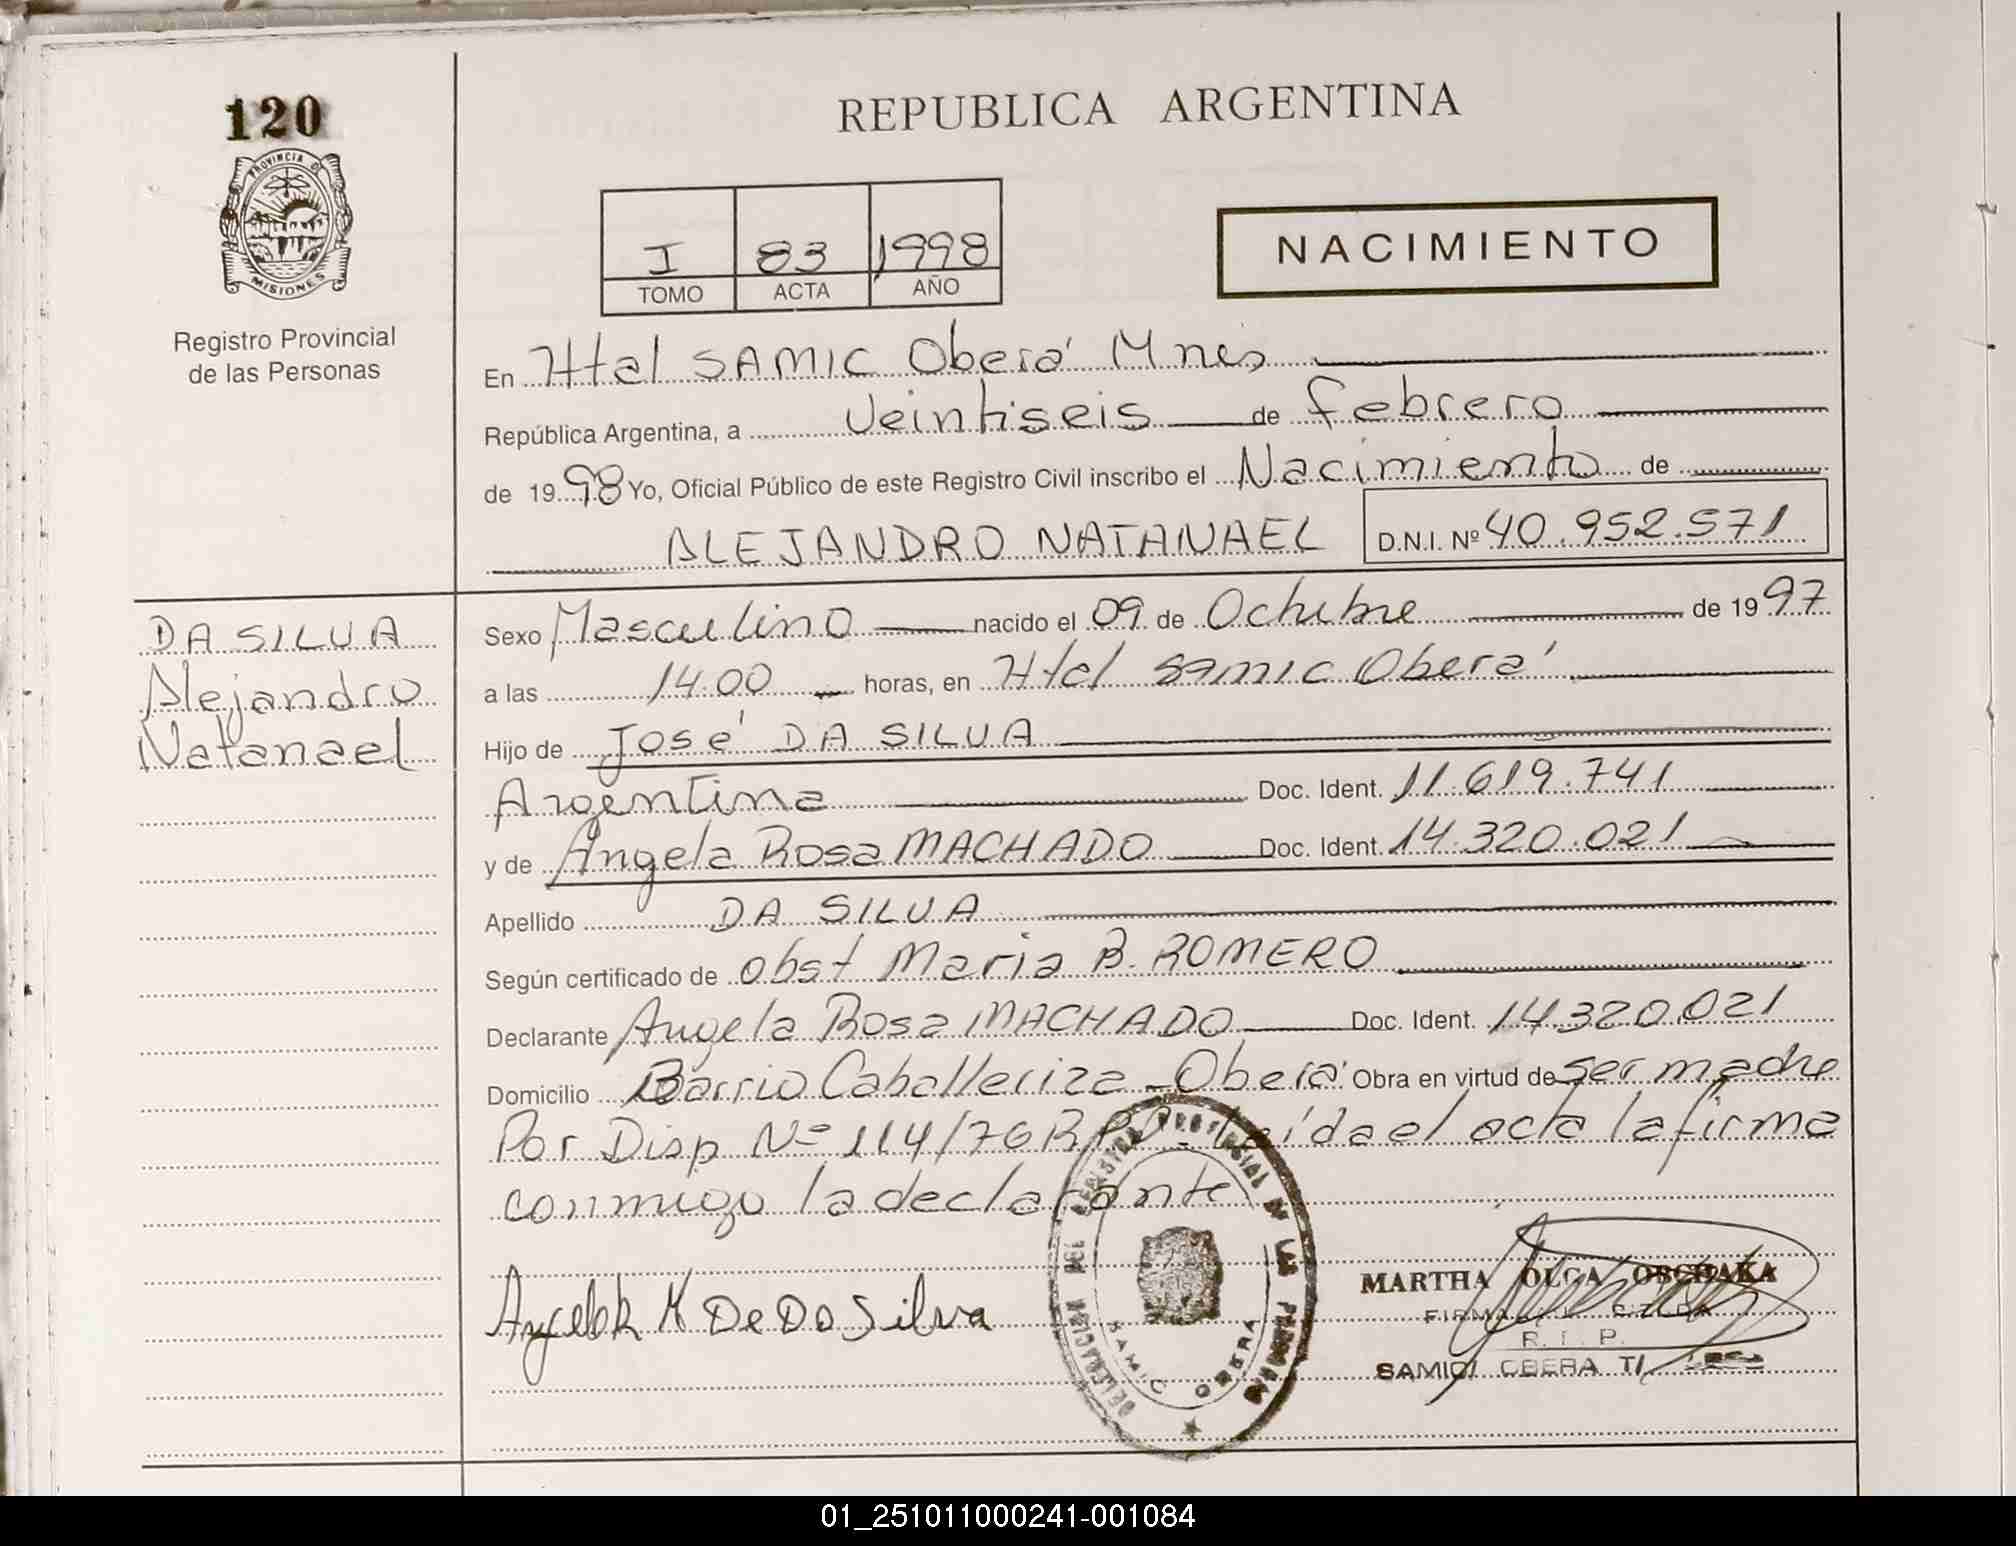 120
PROVINCIA D
MISIONES
Registro Provincial
de las Personas
REPUBLICA ARGENTINA
I 83 1998
TOMO ACTA AÑO
NACIMIENTO
En Htal SAMIC Oberá Mnes
República Argentina, a Veintiseis de febrero
de 1998 Yo, Oficial Público de este Registro Civil inscribo el Nacimiento de
ALEJANDRO NATANAEL D.N.I. Nº 40.952.571
DA SILVA
Alejandro
Natanael
Sexo Masculino nacido el 09 de Octubre de 1997
a las 14.00 horas, en Htal Samic Oberá
Hijo de José DA SILVA
Argentina Doc. Ident. 11.619.741
y de Angela Rosa MACHADO Doc. Ident. 14.320.021
Apellido DA SILVA
Según certificado de obst Maria B. ROMERO
Declarante Angela Rosa MACHADO Doc. Ident. 14.320.021
Domicilio Barrio Caballeriza - Oberá Obra en virtud de ser madre
Por Disp Nº 114/76 R.P.P. Leída el acta la firma
conmigo la declarante
DELEGACION DEL REGISTRO PROVINCIAL DE LAS PERSONAS
SAMIC OBERA
De Da Silva
MARTHA OLGA OBCHAKA
FIRMA
R. I. P.
SAMIC OBERA
01_251011000241-001084